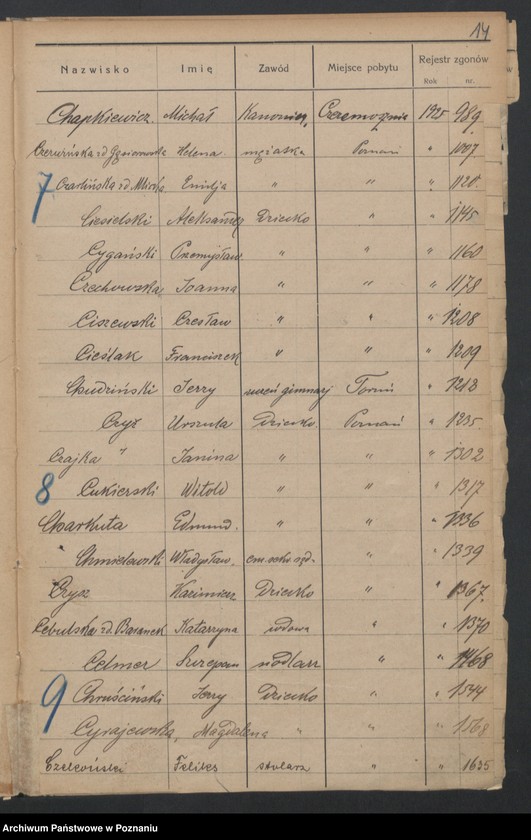 14
Nazwisko Imię Zawód Miejsce pobytu Rejestr zgonów
Rok nr.
Chapkiewicz. Michał Kanonier, 1925 989.
Helena mężatka Poznań " 1097
Emilja " " " 1120.
7
Ciesielski Aleksander Dziecko " " 1145
Cygański Przemysław " " " 1160
Czechowska Joanna " " " 1178
Ciszewski Czesław " " " 1208
Cieślak Franciszek " " " 1209
Chudziński Jerzy uczeń gimnazj Toruń " 1218
Czyż Urszula Dziecko Poznań " 1235.
Czajka " Janina " " " 1302
8
Cukierski Witold " " " 1317
Charkuta Edmund. " " " 1336
Chmielewski Władysław. em. sekr. sąd. " " 1339
Czysz Kazimierz Dziecko " " 1367.
Cebulska zd. Baranek Katarzyna wdowa " " 1370
Celmer Szczepan siodlarz " " 1468
9
Chruściński Jerzy Dziecko " " 1544
Cyrajewska, Magdalena " " " 1568
Feliks stolarz " " 1635
Archiwum Państwowe w Poznaniu